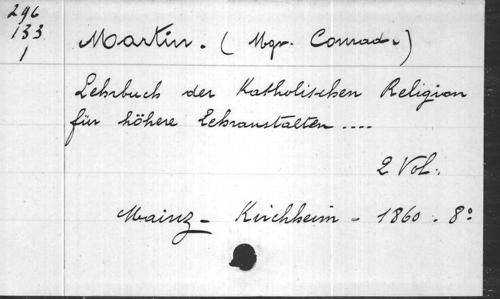 296
133
1
Martin. (Mgr. Conrad.)
Lehrbuch der Katholischen Religion
für höhere Lehranstalten ....
2 Vol.
Mainz - Kirchheim - 1860. 8°